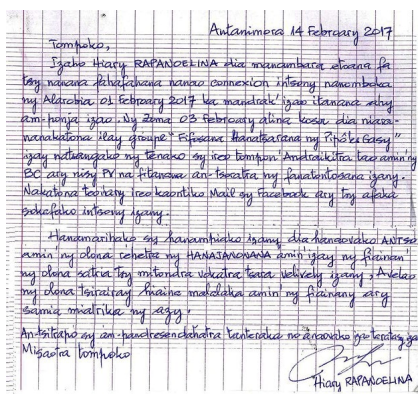 Antanimora 14 February 2017
Tompoko,
Izaho Hiary RAPANOELINA dia manambara etoana fa
tsy nanana fahafahana nanao connexion intsony nanomboka
ny Alarobia 01 February 2017 ka mandrak'izao itanana
am-ponja izao. Ny Zoma 03 February alina kosa dia niara-
nanakatona ilay groupe "Fifosana Hanatsarana ny Pipôl Gasy"
izay natsangako ny tenako sy ireo tompon'Andraikitra tao amin'ny
BC ary nisy PV na fitanana an-tsoratra ny fanatontosana izany.
Nakatona teo ihany ireo kaontiko Mail sy Facebook ary tsy afaka
sokafako intsony izany.
Hanamarihako sy hanampiako izany, dia hanaovako ANTSO
amin'ny olona rehetra ny HANAJANONANA amin'izay ny fiainan'
ny olona satria tsy mitondra vokatra tsara velively izany. Avelao
ny olona tsirairay hiaina malalaka amin'ny fiainany ary
samia miatrika ny azy.
An-tsitrapo sy am-pandresen-dahatra tanteraka no anaovako ity taratasy ity
Misaotra tompoko
Hiary RAPANOELINA